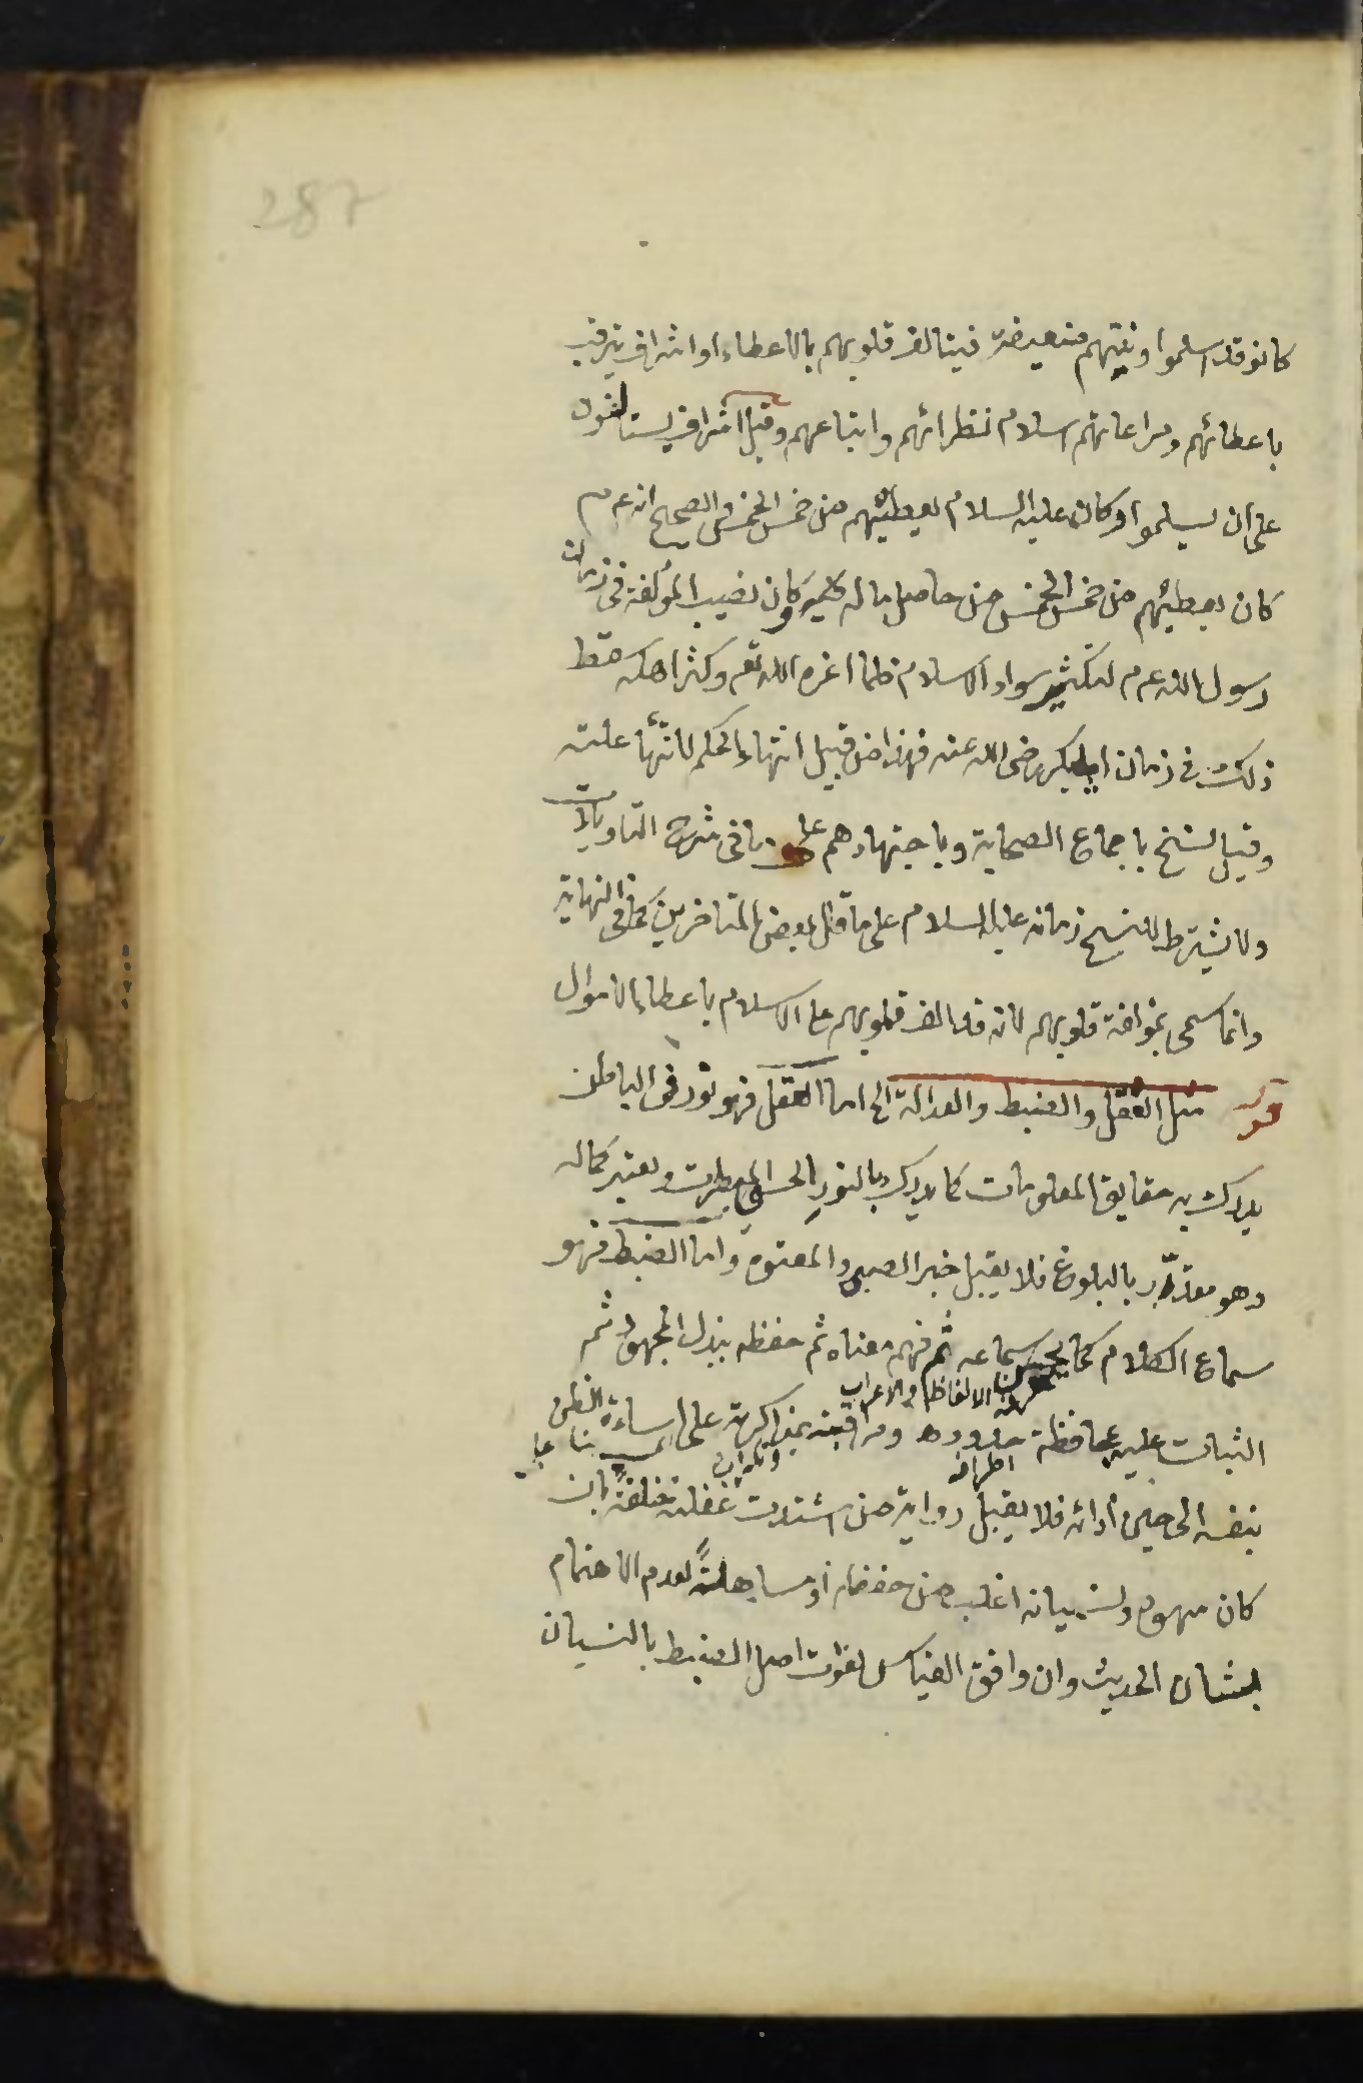 287
كانو قد اسلموا ونيتهم ضعيفة فيتالف قلوبهم بالاعطاء او اشراف يترقب
باعطائهم ومراعاتهم اسلام نظرائهم واتباعهم وقيل اشراف يستالفون
على ان يسلموا وكان عليه السلام يعطيهم من خمس الخمس وفى الصحيح انه عم م
كان يعطيهم من خمس الخمس من خاص ماله وكان نصيب المؤلفة فى زمان
رسول الله عم م لتكثير سواد الاسلام فلما اعزه الله تعم وكثر اهله سقط
ذلك فى زمان ابى بكر رضى الله عنه فهذا من قبيل انتهاء الحكم لانتهاء علته
وقيل نسخ باجماع الصحابة وباجتهادهم على ما فى شرح التاويلات
ولا يشترط للنسخ زمانه عليه السلام على ما قال بعض المتاخرين كما فى النهاية
وانما سمى بمؤلفة قلوبهم لانه قد الف قلوبهم على الاسلام باعطاء الاموال
قوله مثل العقل والضبط والعدالة الخ اما العقل فهو نور فى الباطن
يدرك به حقايق المعلومات كما يدرك بالنور الحسى المبصرات ويعتبر كماله
وهو مقدر بالبلوغ فلا يقبل خبر الصبى والمعتوه واما الضبط فهو
سماع الكلام كما يحق سماعه ثم فهم معناه ثم حفظه ببذل المجهود ثم
الالفاظ والاعراب
الثبات عليه بمحافظة حدوده ومراقبته بمذاكرته على اساءة الظن
اطرافه
بنفسه الى حين ادائه فلا يقبل رواية من اشتدت غفلته خلقة بان
كان سهوه ونسيانه اغلب من حفظه او مساهلة لعدم الاهتمام
بشان الحديث وان وافق القياس لفوات اصل الضبط بالنسيان